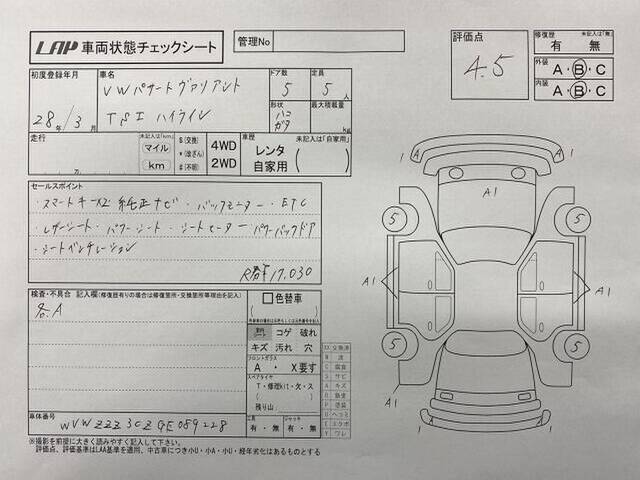 LAP 車両状態チェックシート
管理No
評価点
4.5
修復歴 未記入は「無」
有・無
外装
A・B・C
内装
A・B・C
初度登録年月
28年/3月
車名
VWパサートヴァリアント
TSI ハイライン
ドア数
5
定員
5人
形状
最大積載量
kg
走行
未記入は「km」
マイル
km
万
$(交換)
*(改ざん)
#(不明)
4WD
2WD
車歴 未記入は「自家用」
レンタ
自家用
セールスポイント
・スマートキーX2 純正ナビ・バックモニター・ETC
・レザーシート・パワーシート・シートヒーター・パワーバックドア
・シートベンチレーション
17.030
検査・不具合 記入欄(修復歴有りの場合は修復箇所・交換箇所等理由を記入)
各.A
色替車
コゲ 破れ
キズ 汚れ 穴
フロントガラス
A・X要す
スペアタイヤ
T・修理kit・欠・ス
残り山
工具
有・無
ジャッキ
有・無
XX 交換済
A キズ
U ヘコミ
Y ワレ
車体番号
WVWZZZ3CZGE089228
※撮影を前提に大きく読みやすく記入して下さい。
評価点、評価基準はLAA基準を適用、中古車につき小U・小A・小U・経年劣化はあるものとする
A
1
A
1
A1
5
5
A1
A1
5
5
A1
1
1